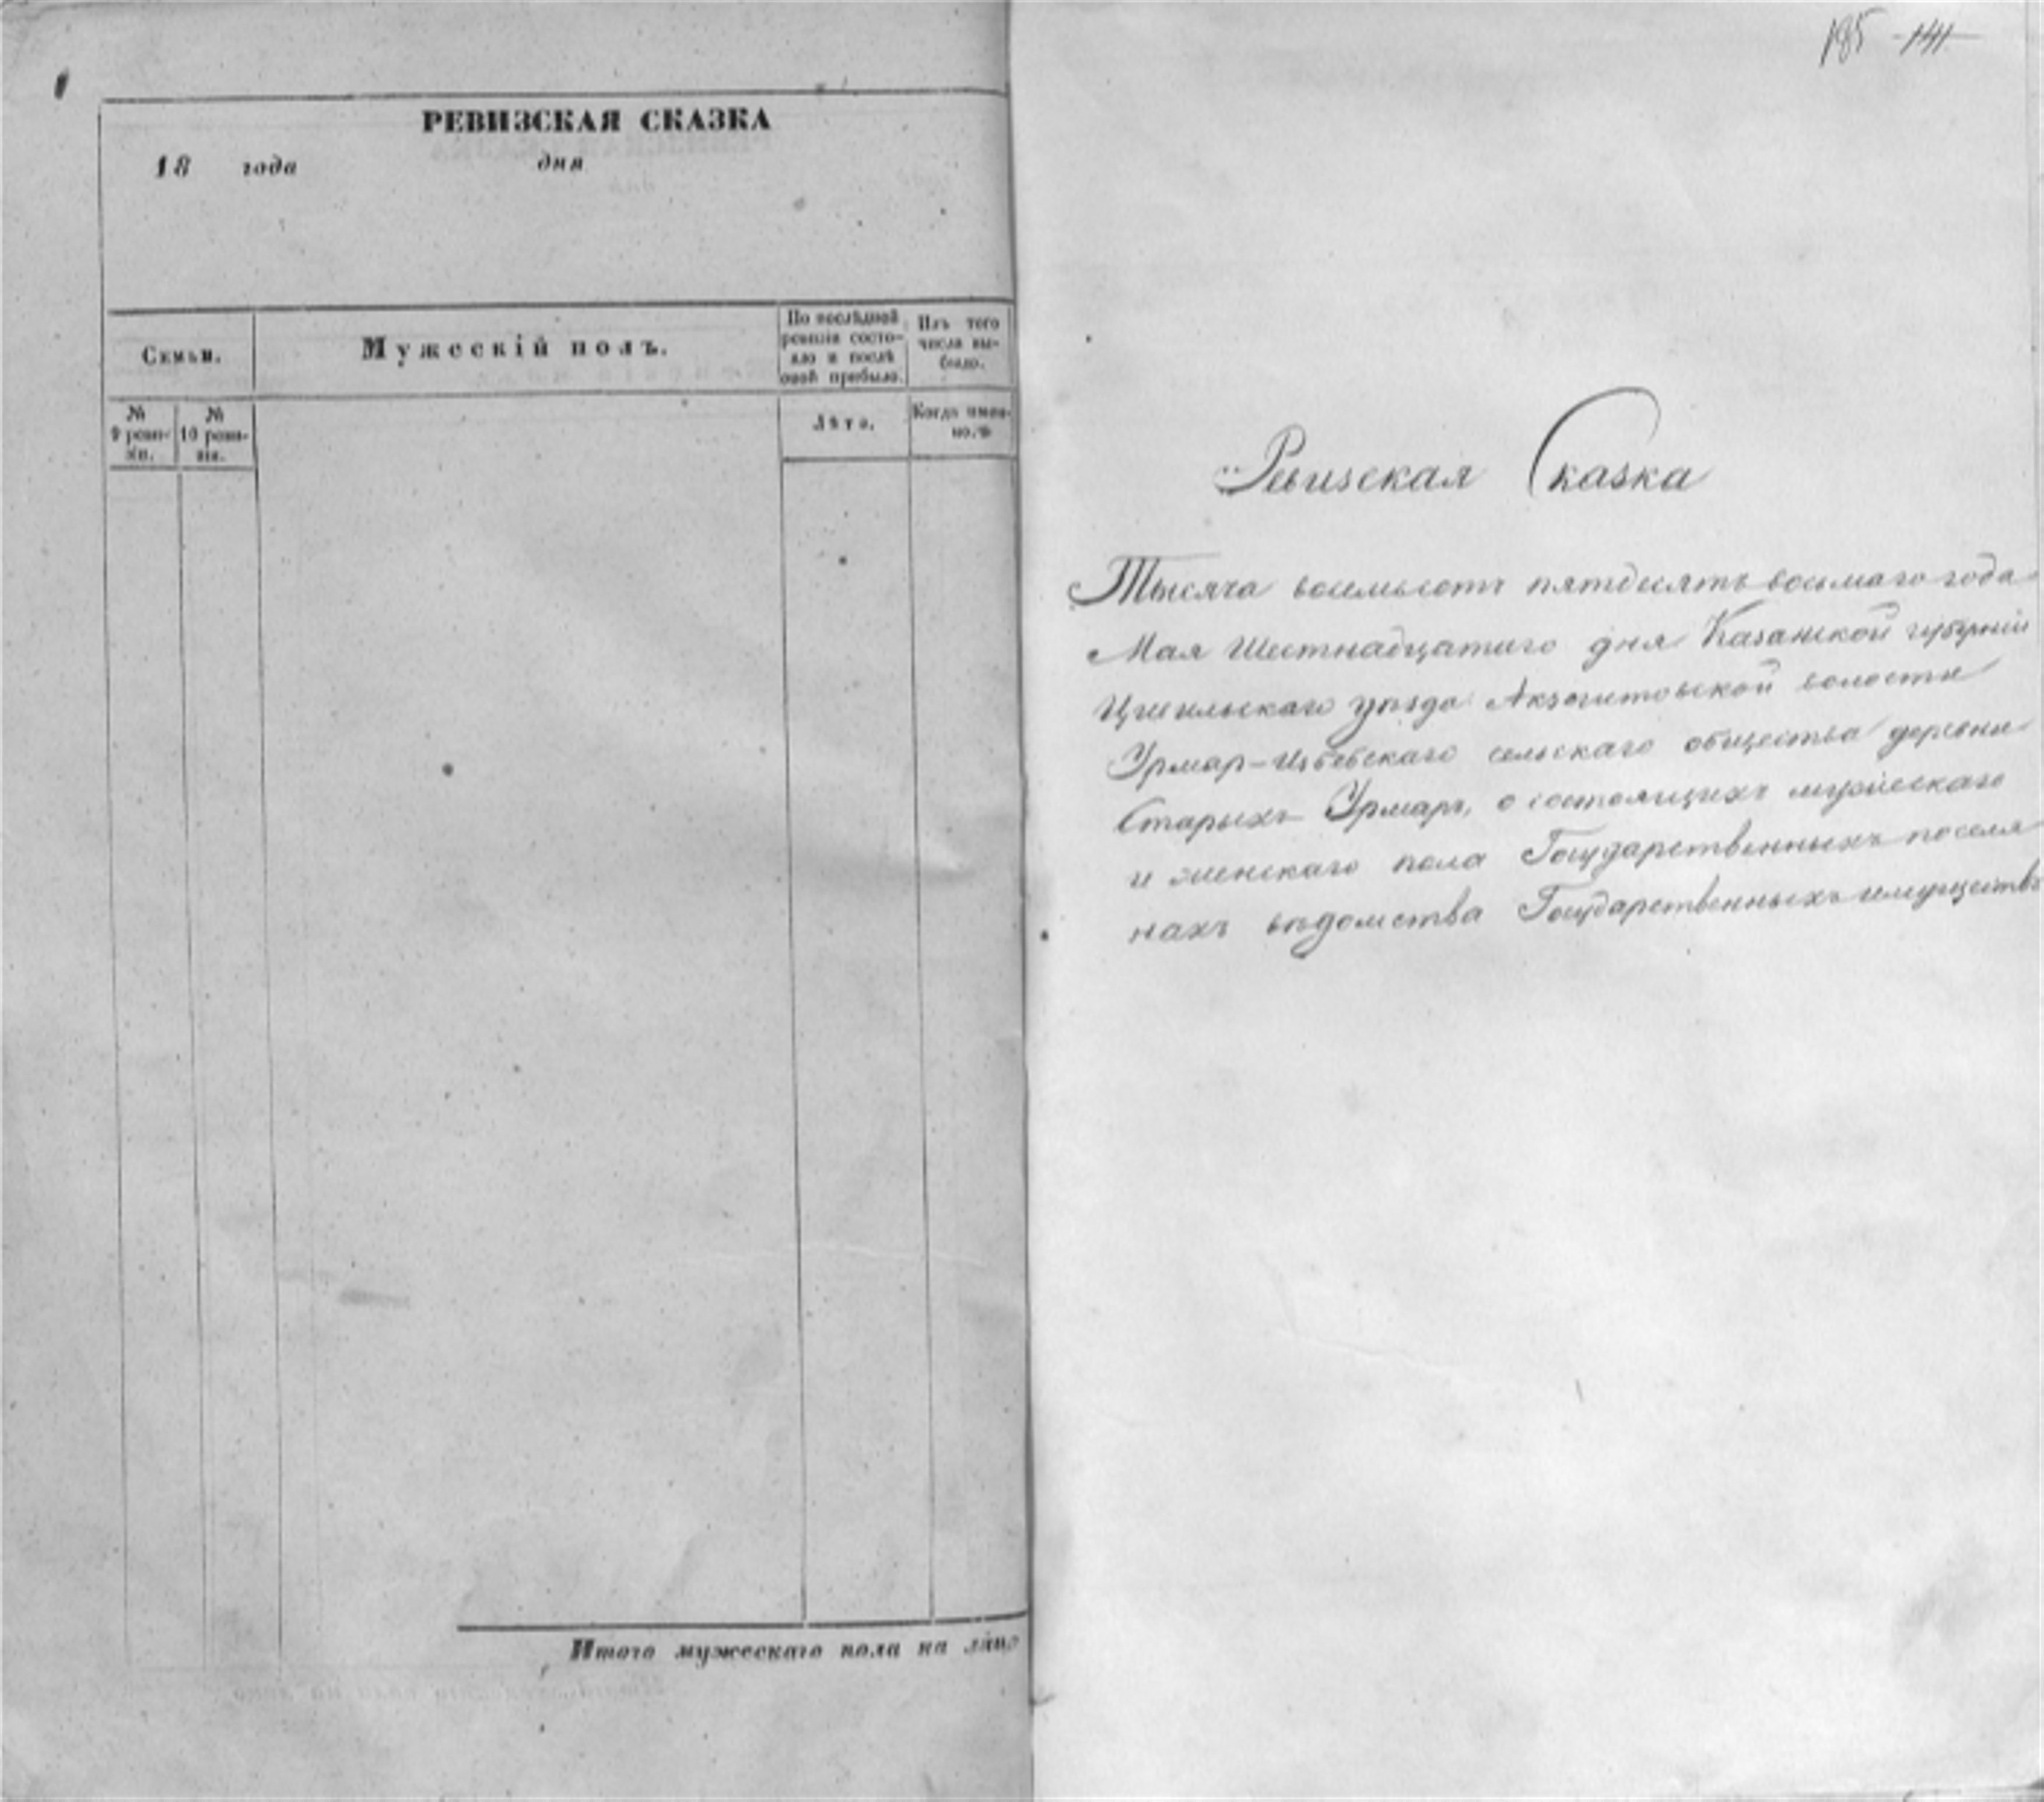 РЕВИЗСКАЯ СКАЗКА
18 года дня
Семьи.
Мужескій полъ.
По послѣдней ревизіи состо-
яло и послѣ
оной прибыло.
Изъ того
числа вы-
было.
№
9 реви-
зіи.
№
10 реви-
зіи.
Лѣта.
Когда имен-
но.
Итого мужескаго пола на лицо
185 141
Ревизская Сказка
Тысяча восемьсотъ пятдесятъ восьмаго года
Мая Шестнадцатаго дня Казанской губерніи
Цивильскаго уѣзда Акзегитовской волости
Урмар-Избебскаго сельскаго общества деревни
Старыхъ Урмаръ, о состоящихъ мужескаго
и женскаго пола Государственныхъ поселя
нахъ вѣдомства Государственныхъ имуществъ